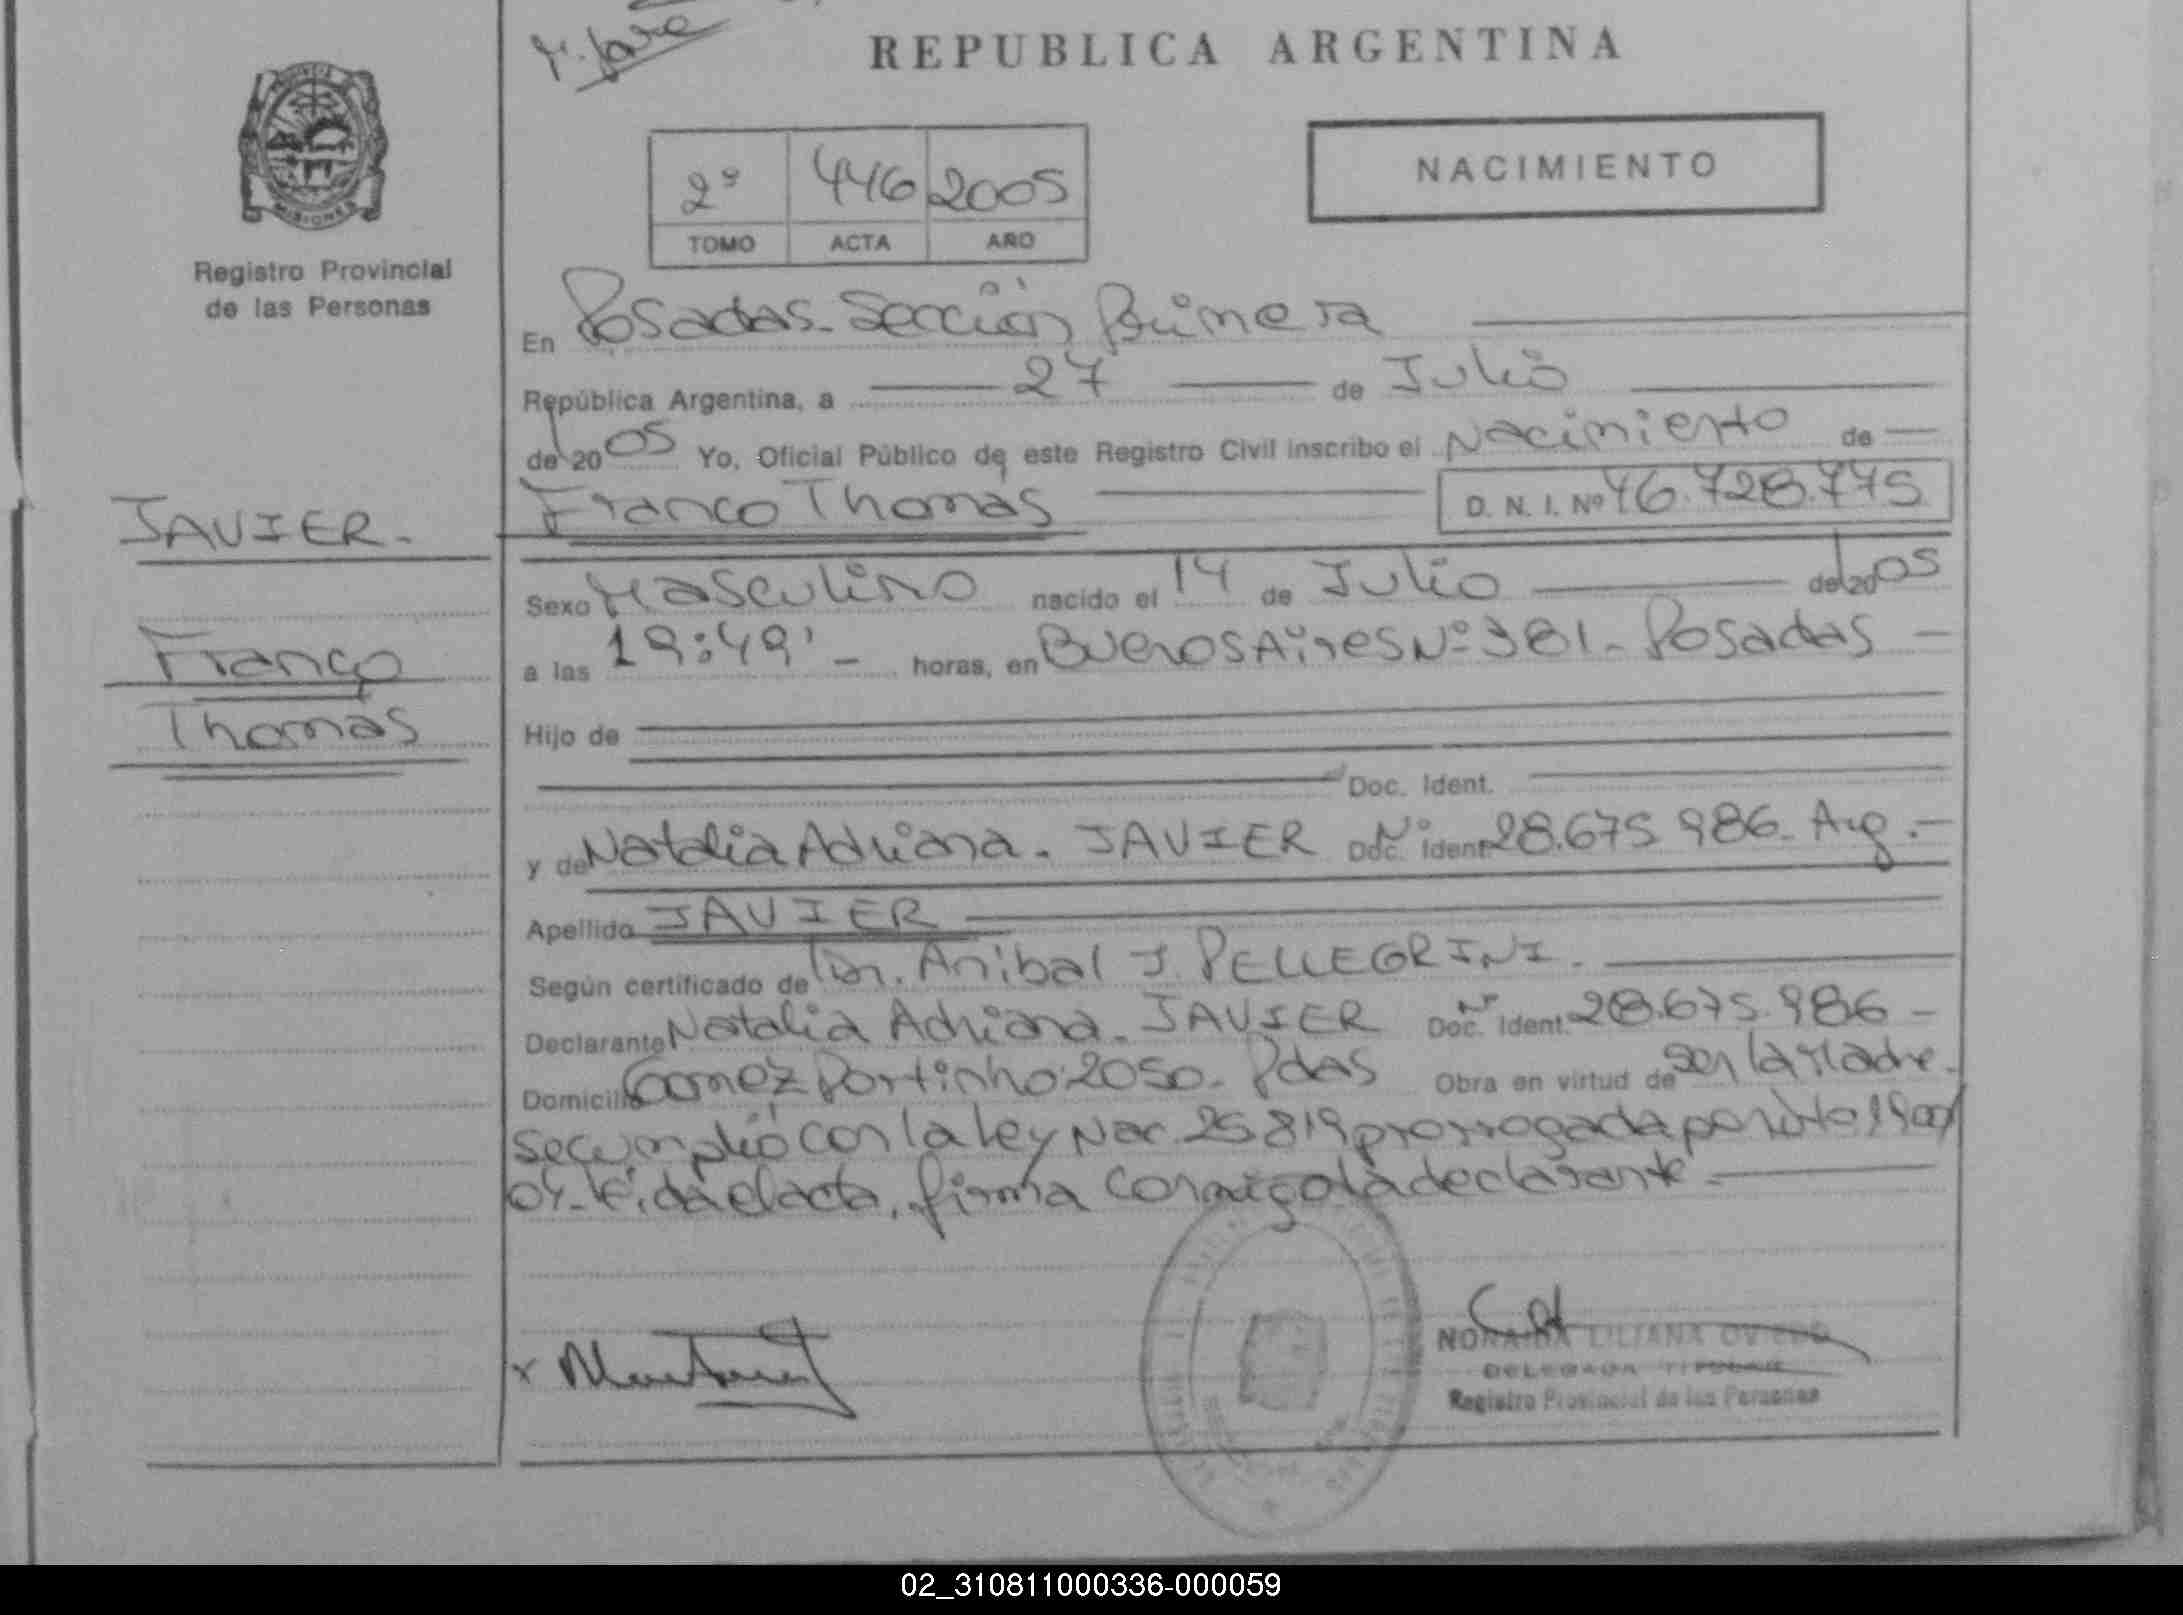 REPUBLICA ARGENTINA
NACIMIENTO
2º 446 2005
TOMO ACTA AÑO
MISIONES
Registro Provincial
de las Personas
En Posadas - Sección Primera
República Argentina, a 27 de Julio
de 2005 Yo, Oficial Público de este Registro Civil inscribo el Nacimiento de
Franco Thomas D. N. I. Nº 46.728.775
JAVIER.-
Franco
Thomas
Sexo Masculino nacido el 14 de Julio de 2005
a las 19:49' - horas, en Buenos Aires Nº 381 - Posadas -
Hijo de
Doc. Ident.
y de Natalia Adriana. JAVIER Doc. Ident. Nº 28.675.986 - Arg.-
Apellido JAVIER
Según certificado de Dr. Anibal J. PELLEGRINI.
Declarante Natalia Adriana. JAVIER Doc. Ident. Nº 28.675.986 -
Domicilio Gomez Portinho 2050 - Pdas Obra en virtud de ser la Madre.
Se cumplió con la ley Nac. 25819 prorrogada por
04 - leída el acta, firma conmigo la declarante.-
LILIANA
DELEGADA TITULAR
Registro Provincial de las Personas
02_310811000336-000059